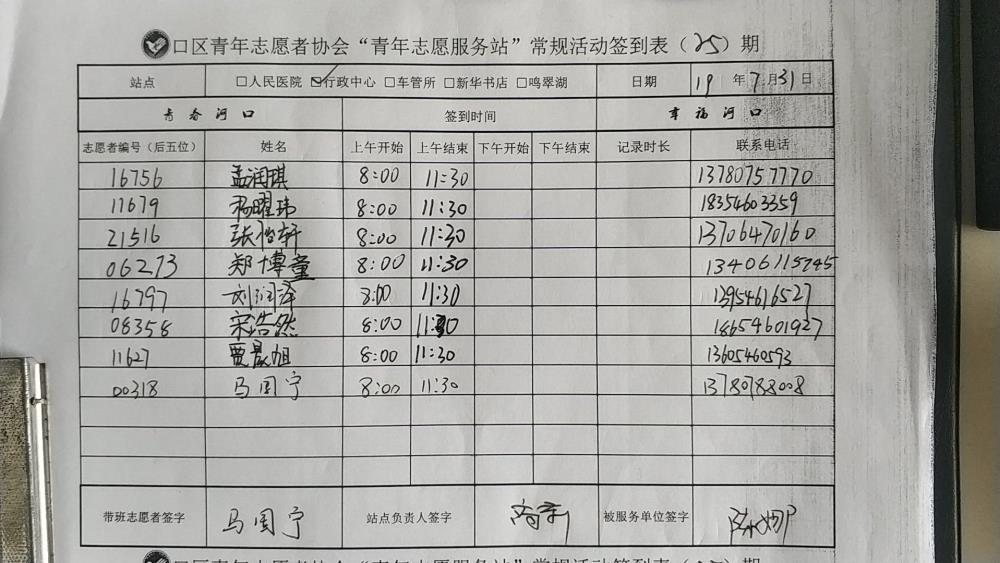 口区青年志愿者协会“青年志愿服务站”常规活动签到表（25）期
站点 □人民医院 ☑行政中心 □车管所 □新华书店 □鸣翠湖 日期 19 年 7 月 31 日
青春河口 签到时间 幸福河口
志愿者编号（后五位） 姓名 上午开始 上午结束 下午开始 下午结束 记录时长 联系电话
16756 孟润琪 8:00 11:30 13780757770
11679 杨曜玮 8:00 11:30 18354603359
21516 张怡轩 8:00 11:30 13706470160
06273 郑博童 8:00 11:30 13406115245
16797 刘润泽 8:00 11:30 13954616527
08358 宋浩然 8:00 11:30 18654601927
11627 贾晨旭 8:00 11:30 13605460593
00318 马国宁 8:00 11:30 13780788008
带班志愿者签字 马国宁 站点负责人签字 被服务单位签字
口区青年志愿者协会“青年志愿服务站”常规活动签到表 期